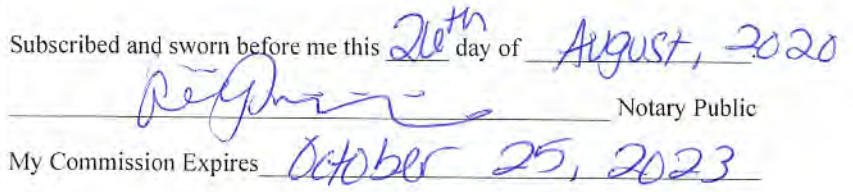 Subscribed and sworn before me this 26th day of August, 2020
Notary Public
My Commission Expires October 25, 2023